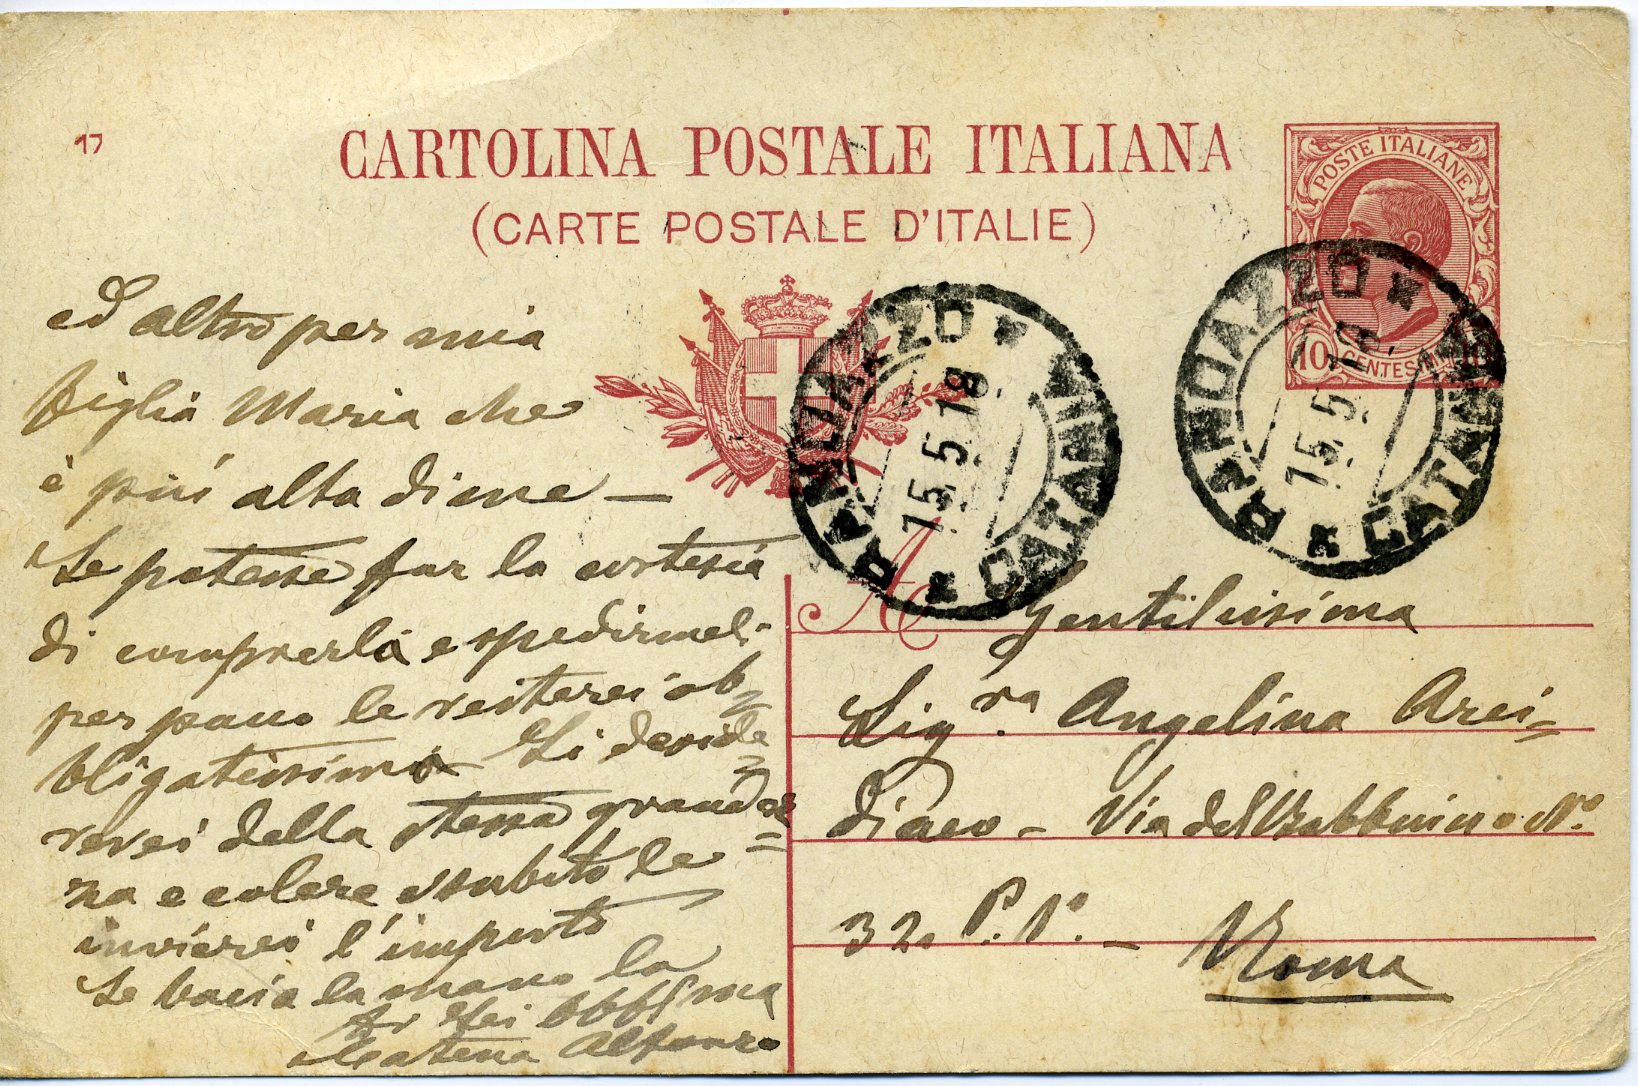 17
CARTOLINA POSTALE ITALIANA
(CARTE POSTALE D'ITALIE)
POSTE ITALIANE
10 CENTESIMI
RANDAZZO
15.5.18
CATANIA
RANDAZZO
15.5.18
CATANIA
ed altro per mia
figlia Maria che
è piú alta di me —
Se potesse far la cortesia
di comprerla e spedirmel-
per pacco le resterei ob=
bligatissima Li deside=
rerei della stessa grandez=
za e colore e subito le
invierei l'importo
Le bacia la mano la
di Lei obbl/ma
Catena Alfonzo
A Gentilissima
Sig.ra Angelina Arci=
diaco - Via del Babbuino N°.
32. P. 1°. -
Roma